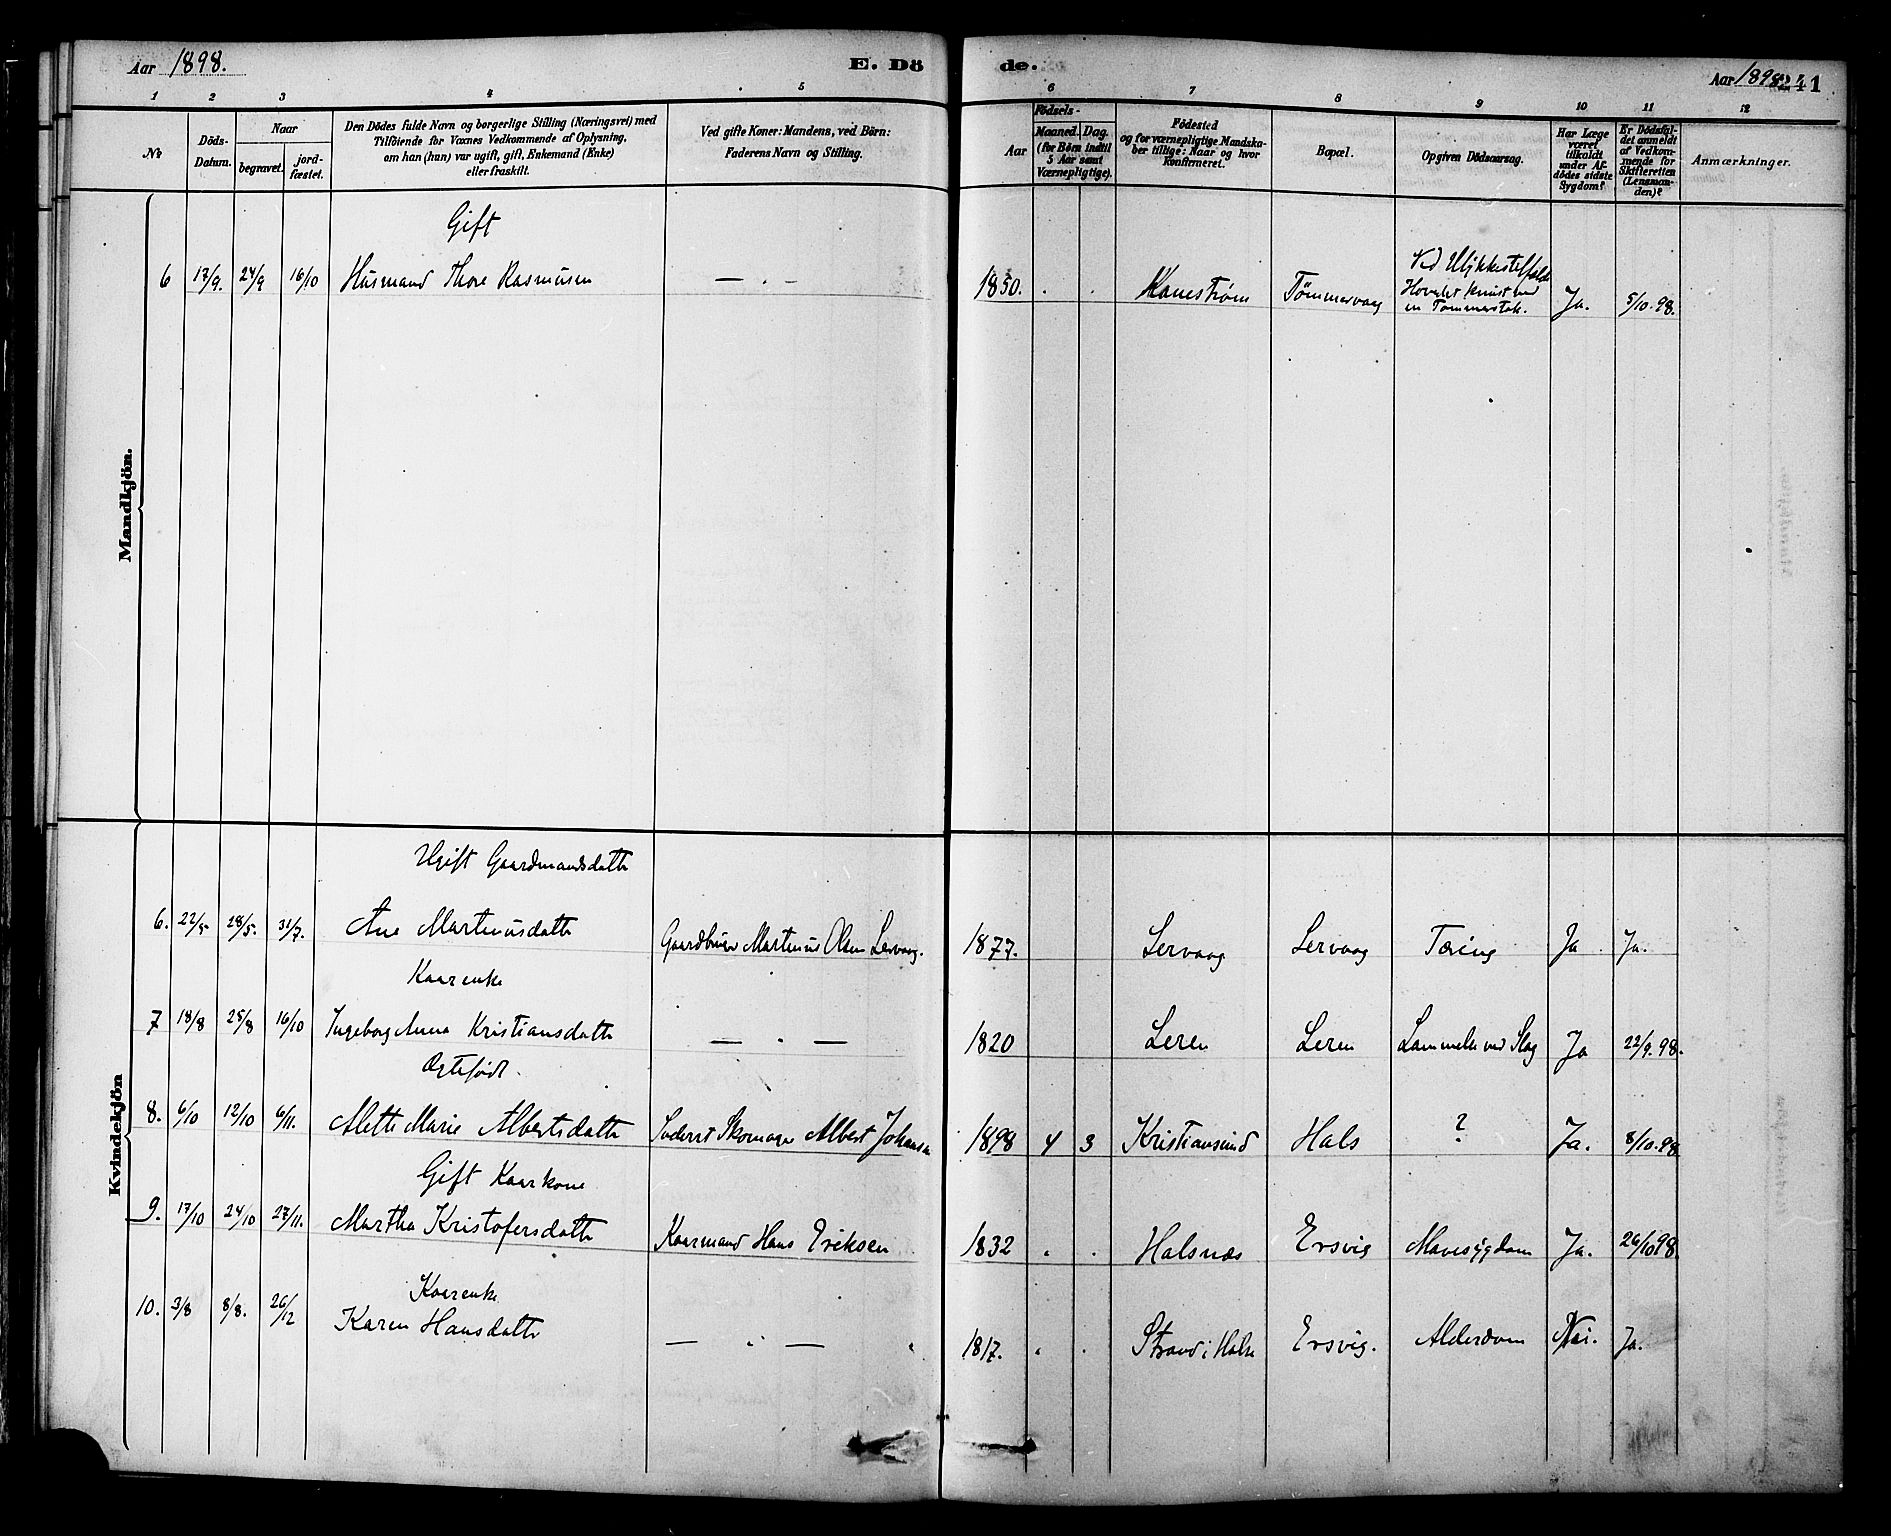 Aar 1898.
E. Dö
de.
Aar 1898.
241
1 2 3 4 5 6 7 8 9 10 11 12
Nr.
Döds-Datum.
Naar
begravet.
jord-fæstet.
Den Dödes fulde Navn og borgerlige Stilling (Næringsvei) med
Tilföiende for Voxnes Vedkommende af Oplysning,
om han (hun) var ugift, gift, Enkemand (Enke)
eller fraskilt.
Ved gifte Koner: Mandens, ved Börn:
Faderens Navn og Stilling.
Födsels-
Aar
Maaned. Dag.
(for Börn indtil
5 Aar samt
Værnepligtige).
Födested
og for værnepligtige Mandska-
ber tillige: Naar og hvor
Konfirmeret.
Bopæl.
Opgiven Dödsaarsag.
Har Læge
været
tilkaldt
under Af-
dödes sidste
Sygdom?
Er Dödsfal-
det anmeldt
af Vedkom-
mende for
Skifteretten
(Lensman-
den)?
Anmærkninger.
Mandkjön.
Gift
6 17/9. 24/9 16/10 Husmand Thore Rasmusen — . — 1850. . . Kanestrøm Tømmervaag Ved Ulykkestilfælde Hovedet knust ved en Tømmerstok. Ja. 5/10.98.
Kvindekjön
Ugift Gaardmandsdatte
6. 22/5 28/5. 31/7. Ane Martinusdatte Gaardbruger Martinus Olsen Lervaag. 1877. Lervaag Lervaag Tæring Ja Ja.
Kaarenke
7 18/8 25/8 16/10 Ingeborg Anna Kristiansdatte — . — 1820 Leren Leren Lammelse ved Slag Ja 22/9.98.
Ægtefødt.
8. 6/10 12/10 6/11. Alette Marie Albertsdatte Inderst Skomager Albert Johansen 1898 4 3 Kristiansund Hals ? Ja. 8/10.98
Gift Kaarkone
9. 17/10 24/10 27/11. Martha Kristofersdatte Kaarmand Hans Eriksen 1832 . . Halsnæs Ersvig Mavesygdom Ja. 26/10 98
Kaarenke
10. 3/8 8/8. 26/12 Karen Hansdatte — . — 1817. . . Strand i Halse Ersvig. Alderdom Nei. Ja.